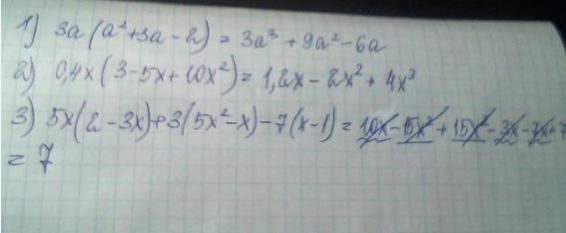 1) 3a(a²+3a-2) = 3a³+9a²-6a
2) 0,4x(3-5x+10x²) = 1,2x-2x²+4x³
3) 5x(2-3x)+3(5x²-x)-7(x-1) = 10x-15x²+15x²-3x-7x+7
= 7